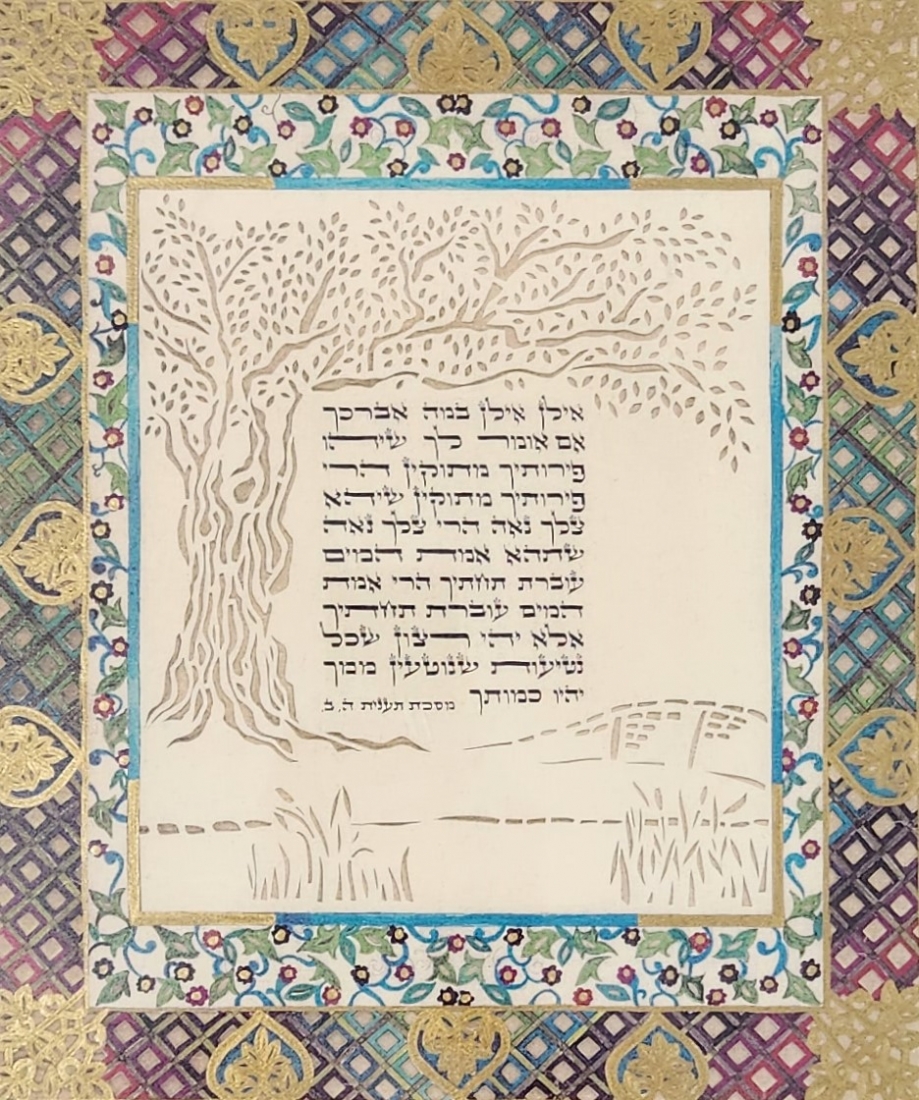 אילן אילן במה אברכך
אם אומר לך שיהו
פירותיך מתוקין הרי
פירותיך מתוקין שיהא
צלך נאה הרי צלך נאה
שתהא אמת המים
עוברת תחתיך הרי אמת
המים עוברת תחתיך
אלא יהי רצון שכל
נטיעות שנוטעין ממך
יהיו כמותך מסכת תענית ה, ב.